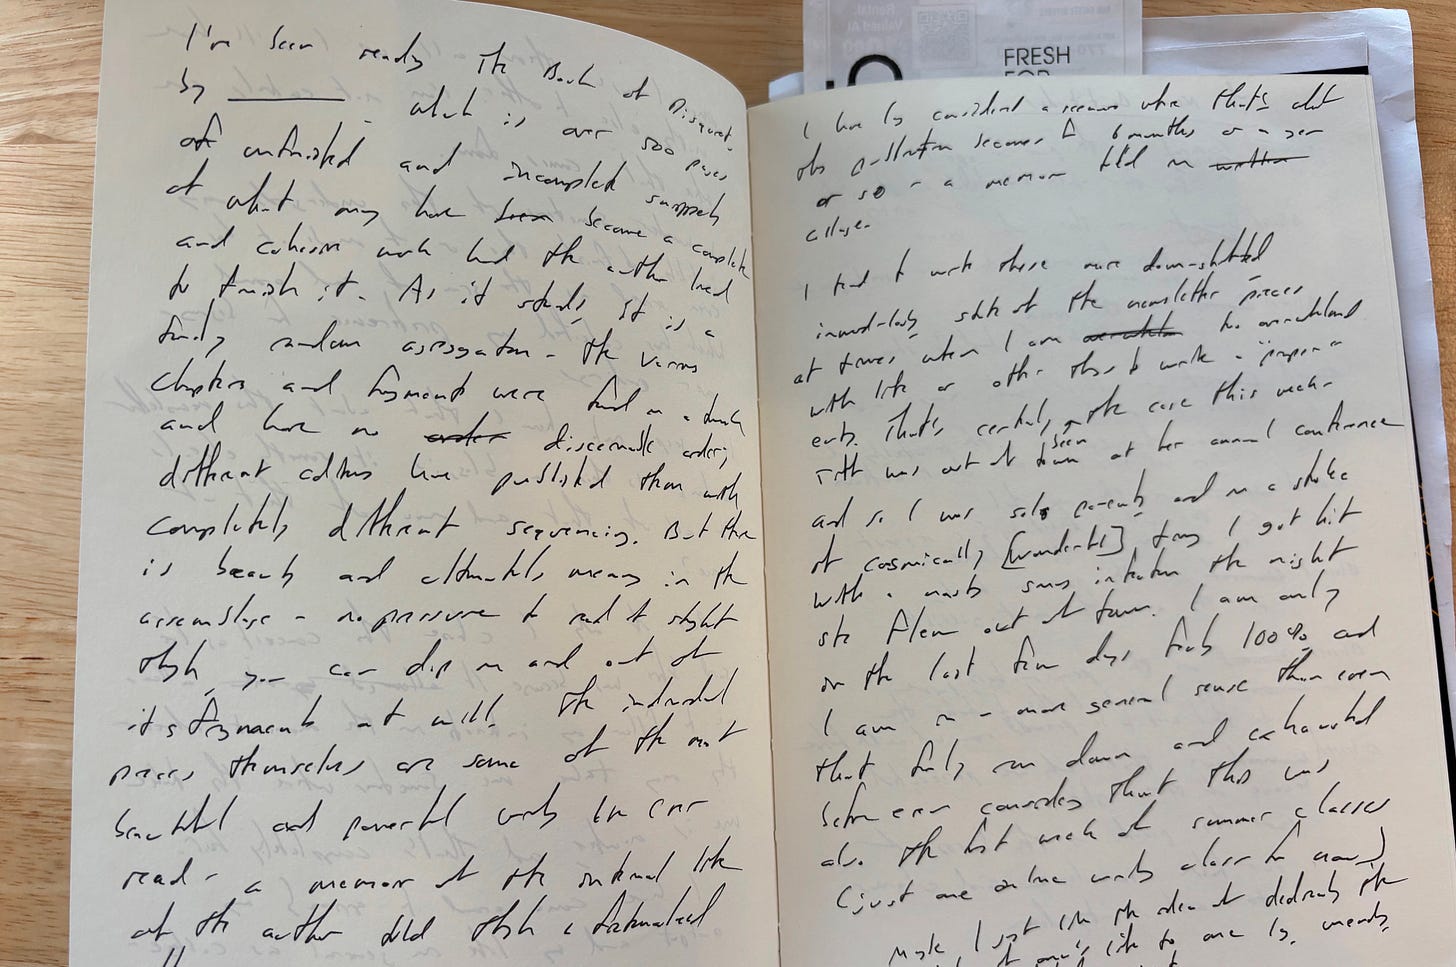 I've been reading The Book of Disquiet
by ________ - which is over 500 pages
of unfinished and incomplete snippets
of what may have been become a complete
and cohesive work had the author lived
to finish it. As it stands, it is a
fairly random aggregation - the various
chapters and fragments were found in a trunk
and have no order discernable order,
different editors have published them with
completely different sequencing. But there
is beauty and ultimately meaning in the
assemblage - no pressure to read it straight
though, you can dip in and out of
its fragments at will. The individual
pieces themselves are some of the most
beautiful and powerful words I've ever
read - a memoir of the internal life
of the author told through a fictionalized
FRESH
FOR
I have considered a because that's what
this collection becomes 6 months or a year
or so - a memoir told in written
collage.
I tend to write these more down-shifted
state of the newsletter pieces
at times when I am overwhelm too overwhelmed
with life or other things to write a "proper"
That's certainly the case this week -
was out of town at her annual conference
been
and so I was solo parenting and in a stroke
of cosmically [wonderful] timing I got hit
with a nasty sinus infection the night
she flew out of town. I am only
in the last few days feeling 100% and
I am in a more general sense than even
that fairly run down and exhausted
before even considering that this was
also the first week of summer classes
(just one online class for now)
Maybe I just like the idea of